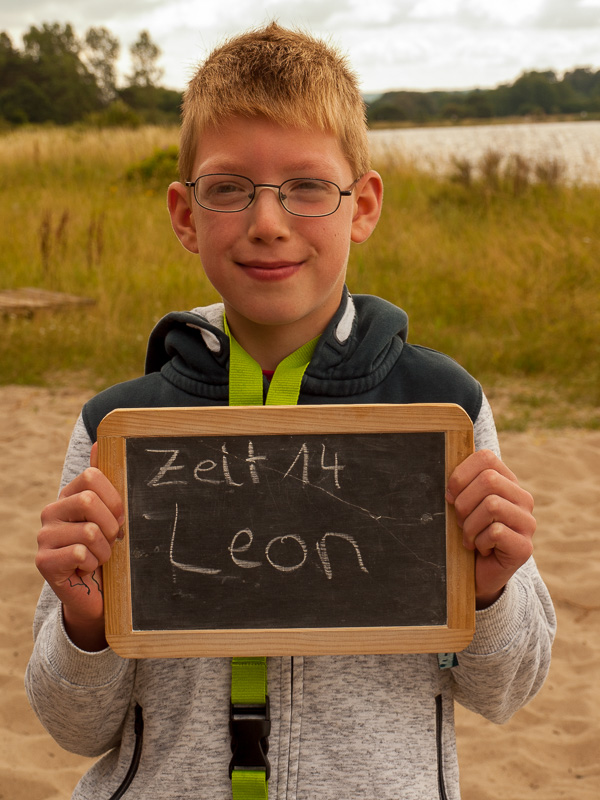 Zeit 14
Leon